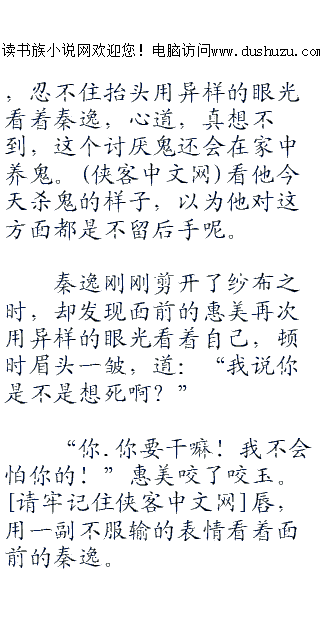 读书族小说网欢迎您！电脑访问www.dushuzu.com
，忍不住抬头用异样的眼光
看着秦逸，心道，真想不
到，这个讨厌鬼还会在家中
养鬼。(侠客中文网)看他今
天杀鬼的样子，以为他对这
方面都是不留后手呢。
秦逸刚刚剪开了纱布之
时，却发现面前的惠美再次
用异样的眼光看着自己，顿
时眉头一皱，道：“我说你
是不是想死啊？”
“你.你要干嘛！我不会
怕你的！”惠美咬了咬玉。
[请牢记住侠客中文网]唇，
用一副不服输的表情看着面
前的秦逸。